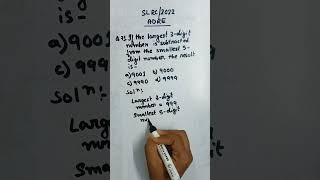 SLRC/2022
ADRE
Q.73. If the largest 3-digit
number is subtracted
from the smallest 5-
digit number, the result
is-
a) 9001 b) 9000
c) 9990 d) 9999
Solⁿ:
Largest 3-digit
number = 999
Smallest 5-digit